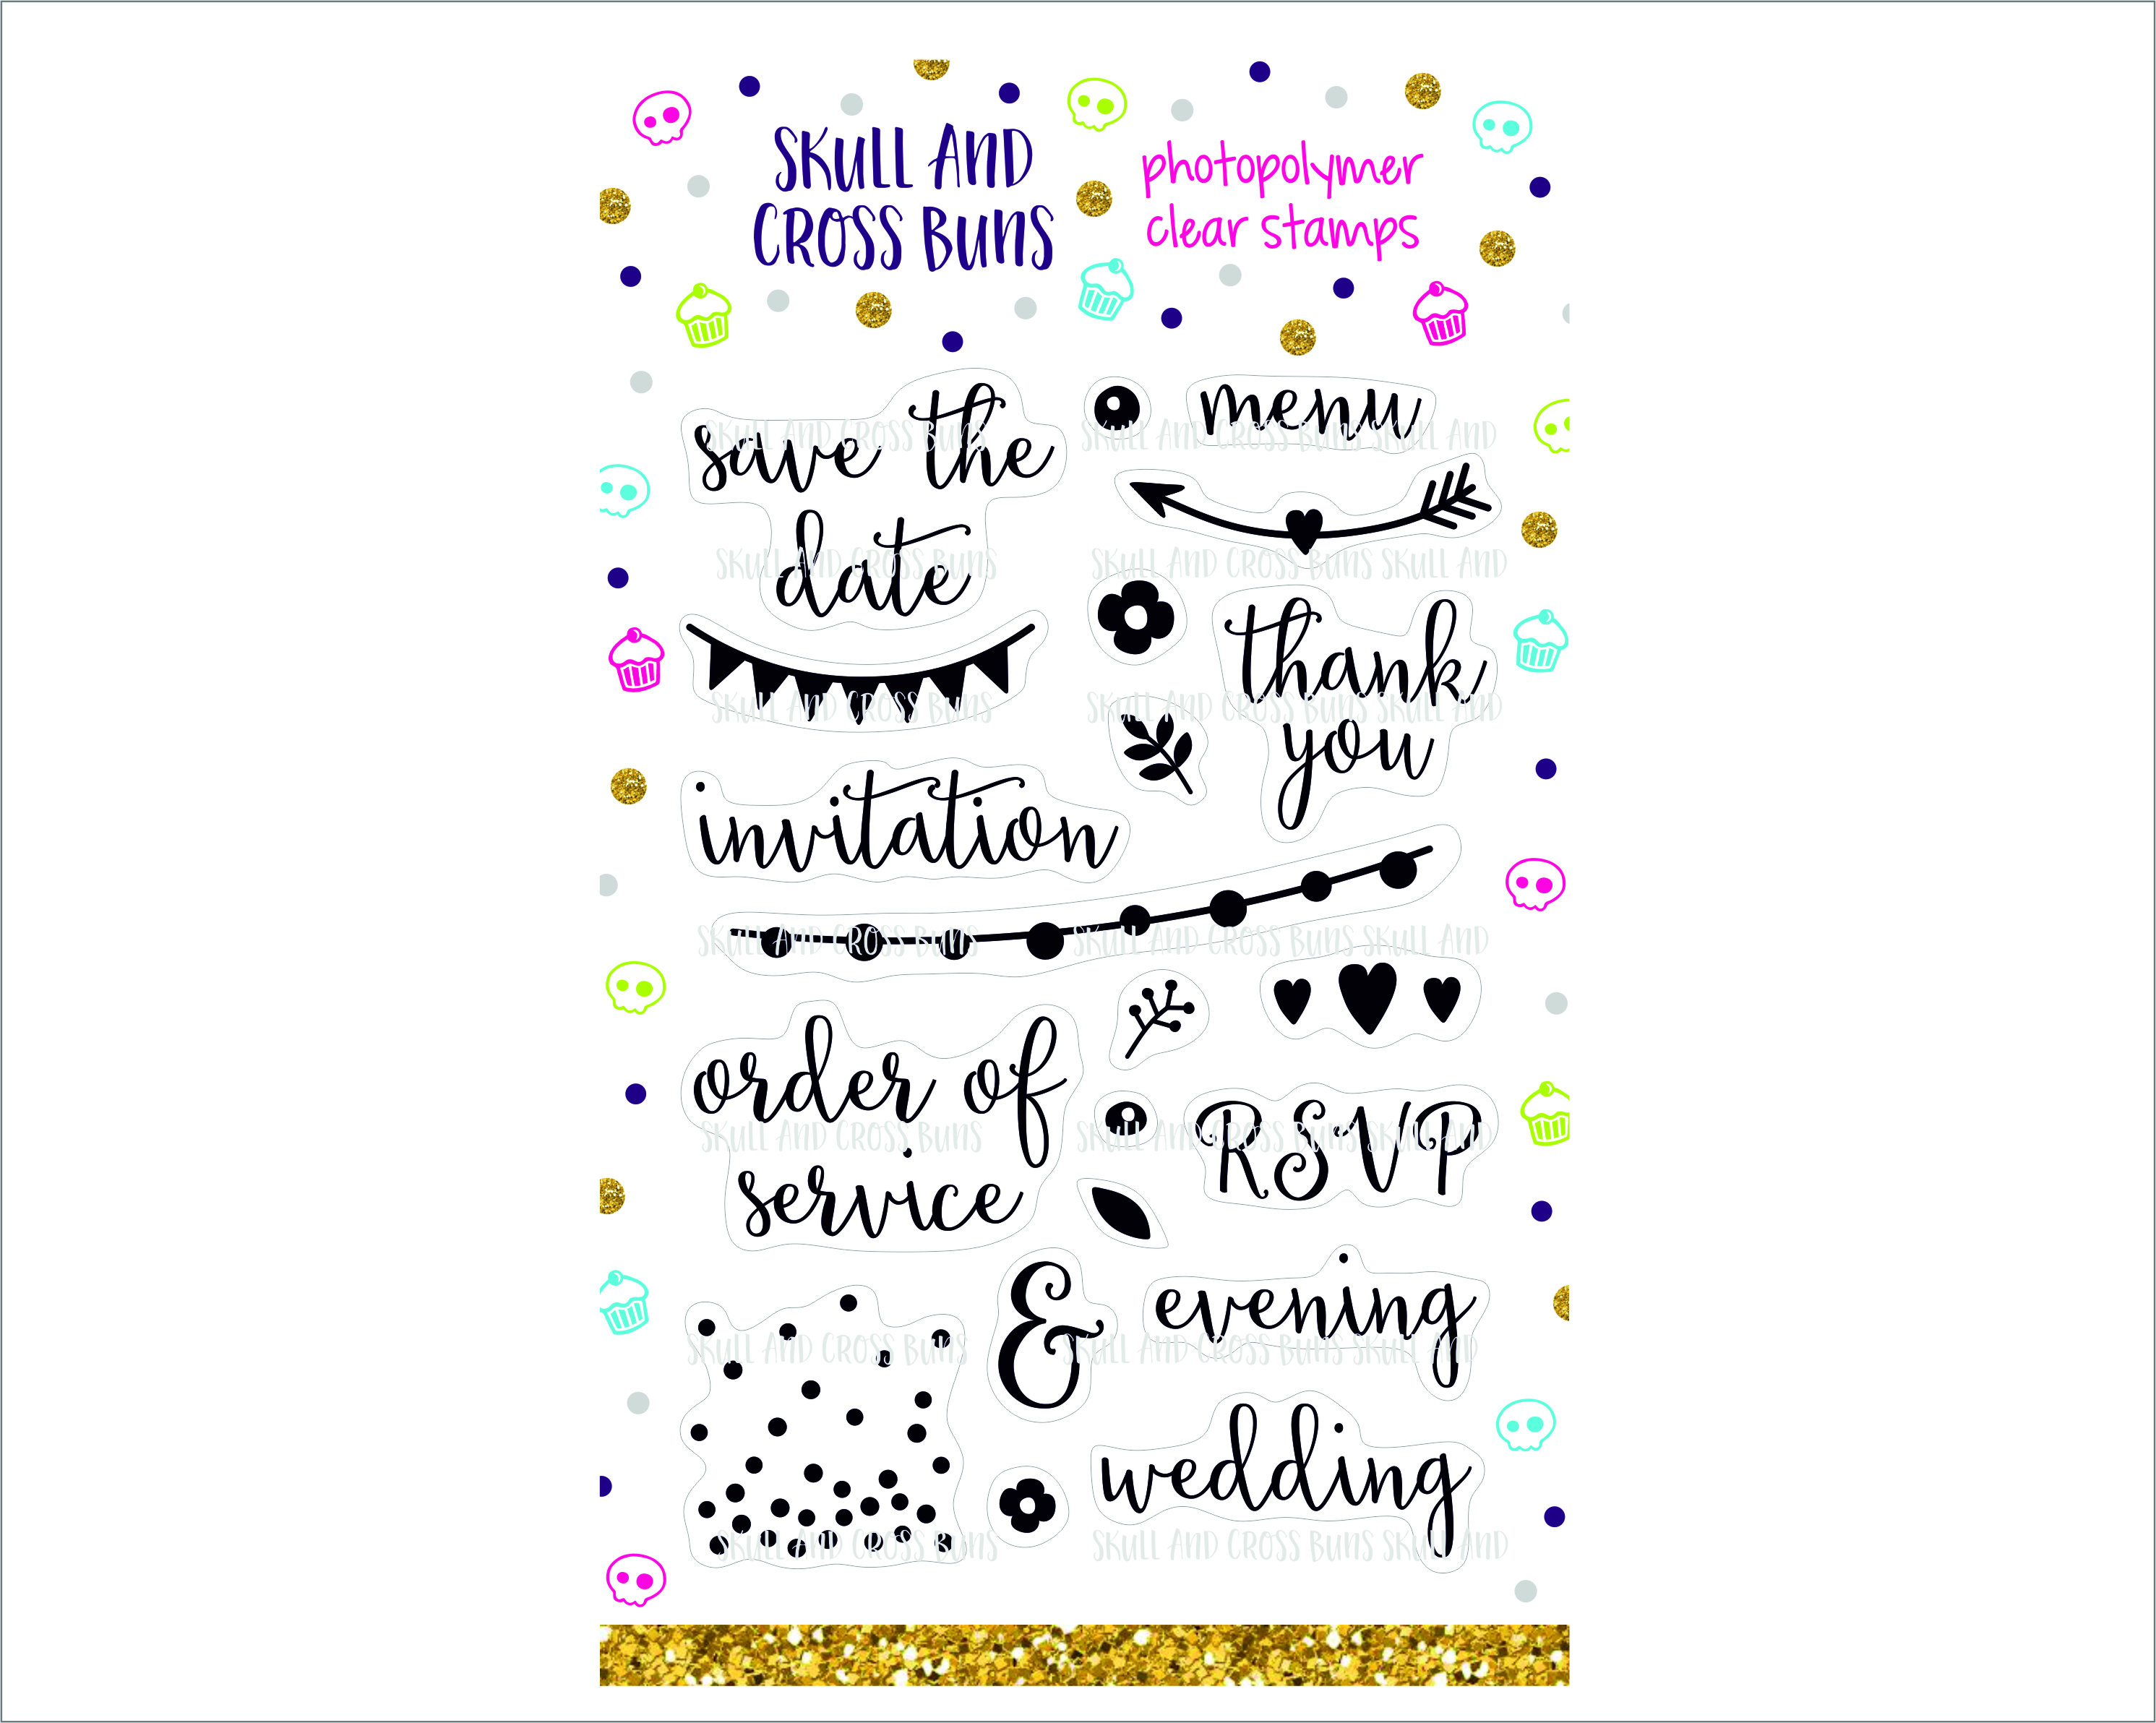 SKULL AND
CROSS BUNS
photopolymer
clear stamps
save the
date
menu
thank
you
invitation
order of
service
RSVP
&
evening
wedding
SKULL AND CROSS BUNS
SKULL AND CROSS BUNS SKULL AND
SKULL AND CROSS BUNS
SKULL AND CROSS BUNS SKULL AND
SKULL AND CROSS BUNS
SKULL AND CROSS BUNS SKULL AND
SKULL AND CROSS BUNS
SKULL AND CROSS BUNS SKULL AND
SKULL AND CROSS BUNS
SKULL AND CROSS BUNS SKULL AND
SKULL AND CROSS BUNS
SKULL AND CROSS BUNS SKULL AND
SKULL AND CROSS BUNS
SKULL AND CROSS BUNS SKULL AND